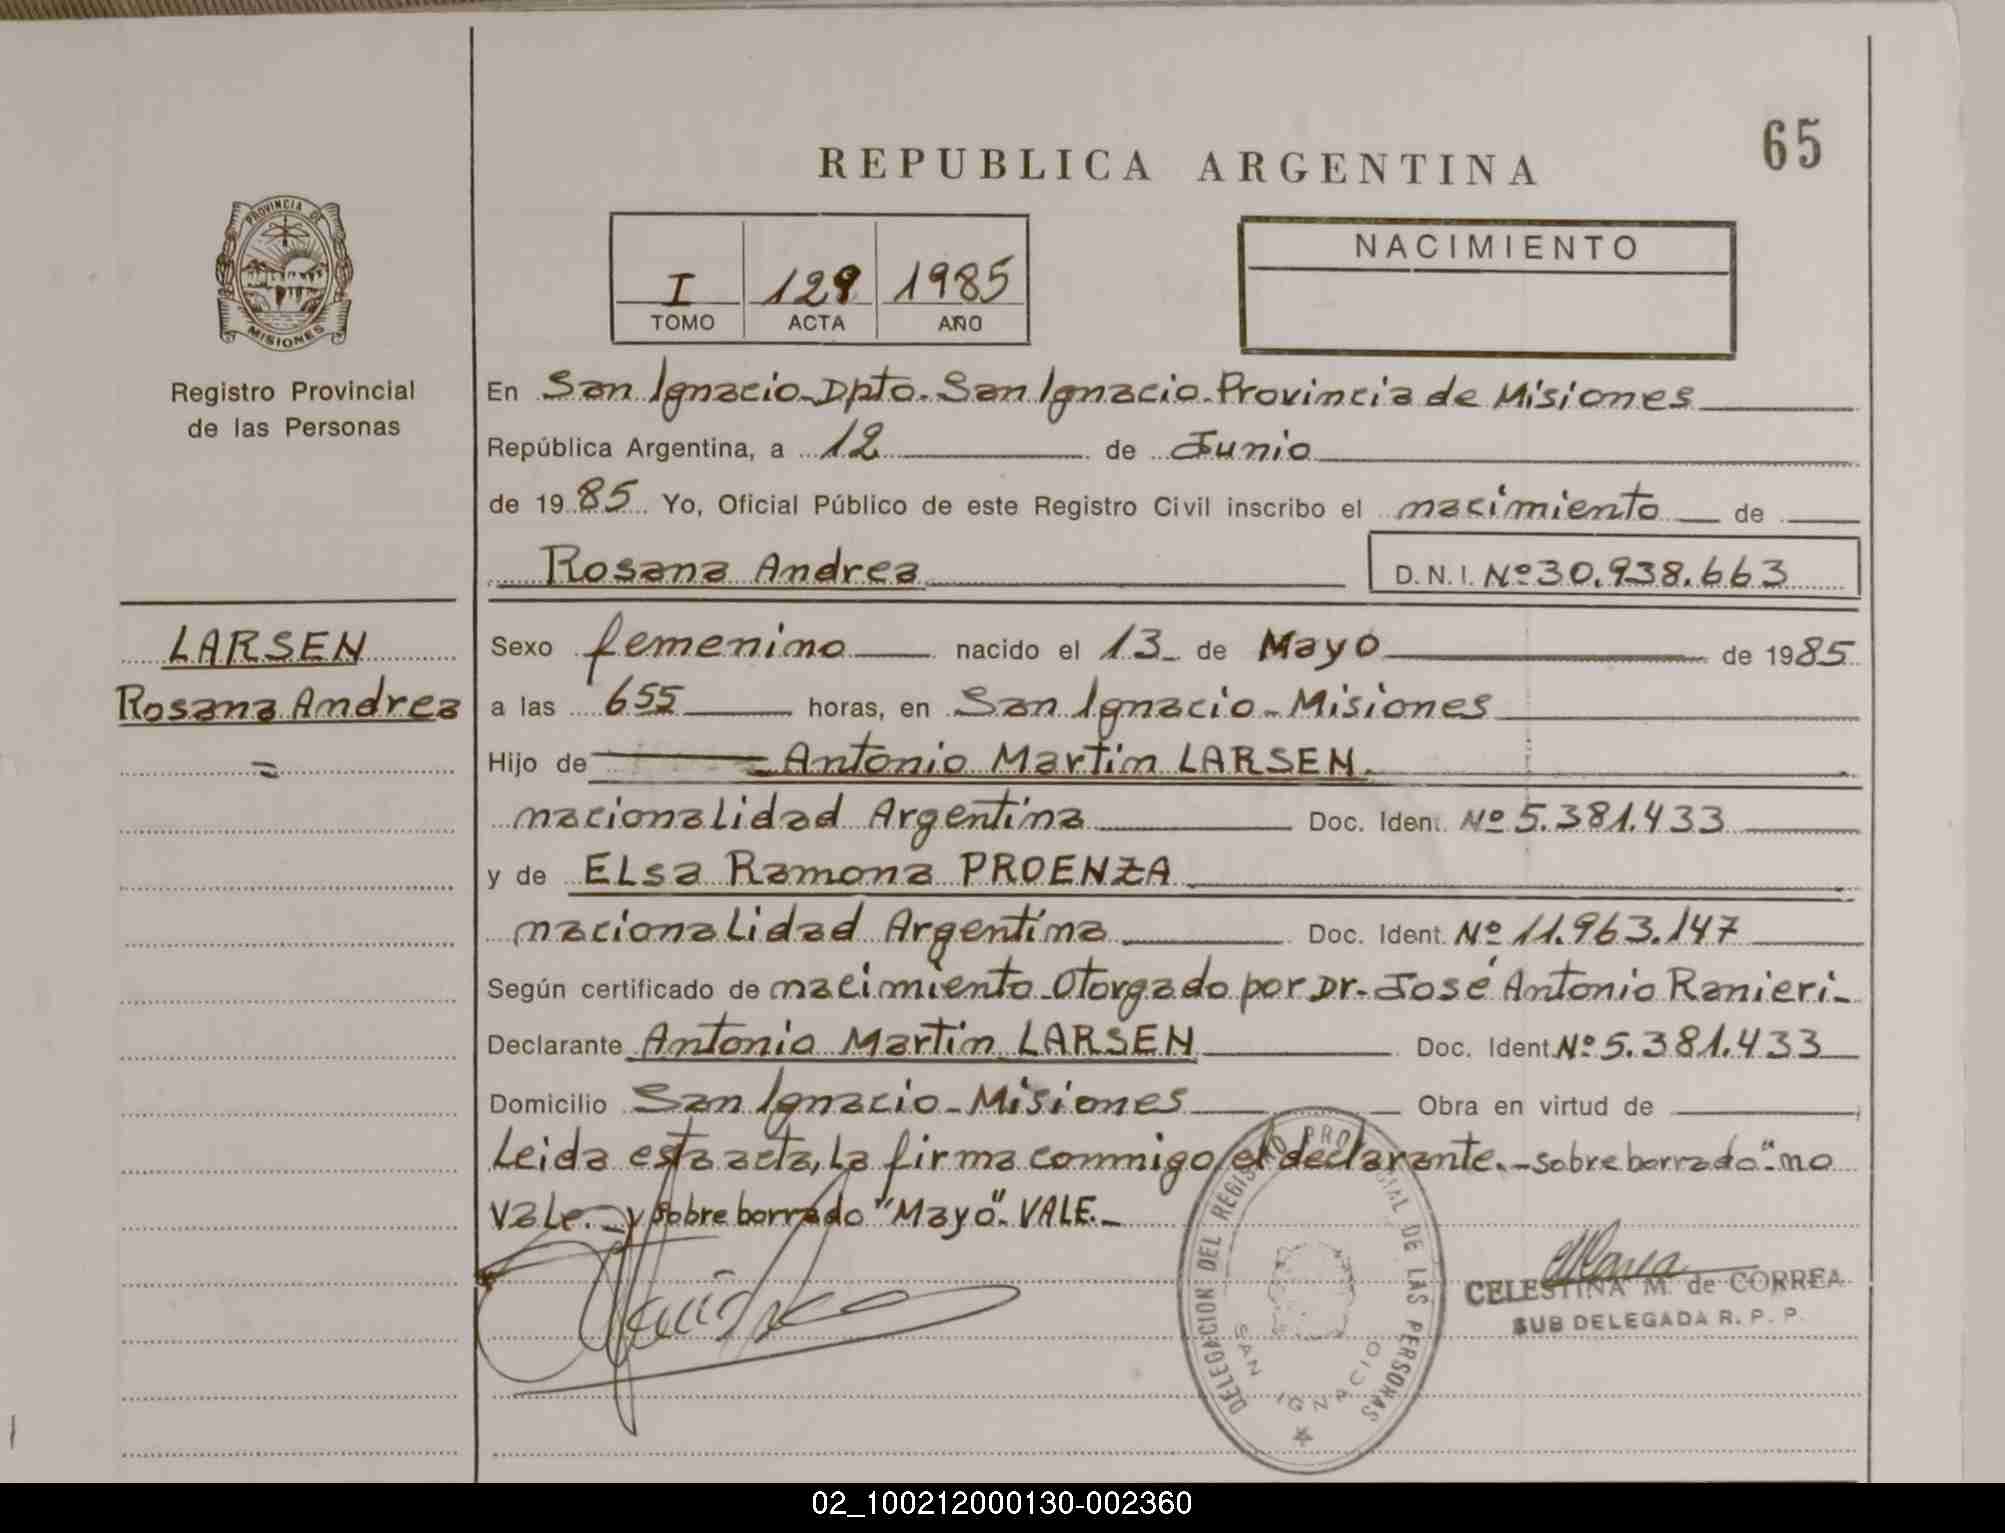 65
REPUBLICA ARGENTINA
PROVINCIA DE
MISIONES
Registro Provincial
de las Personas
I 129 1985
TOMO ACTA AÑO
NACIMIENTO
En San Ignacio-Dpto. San Ignacio-Provincia de Misiones
República Argentina, a 12 de Junio
de 1985 Yo, Oficial Público de este Registro Civil inscribo el nacimiento de
Rosana Andrea D.N.I. Nº 30.938.663
LARSEN
Rosana Andrea
=
Sexo femenino nacido el 13 de Mayo de 1985
a las 655 horas, en San Ignacio-Misiones
Hijo de Antonio Martin LARSEN.
nacionalidad Argentina Doc. Ident. Nº 5.381.433
y de ELsa Ramona PROENZA
nacionalidad Argentina Doc. Ident. Nº 11.963.147
Según certificado de nacimiento-Otorgado por Dr. José Antonio Ranieri-
Declarante Antonio Martin LARSEN Doc. Ident. Nº 5.381.433
Domicilio San Ignacio-Misiones Obra en virtud de
Leida esta acta, La firma conmigo el declarante.-sobre borrado"-no
vale.-y sobre borrado "Mayo". VALE.-
DELEGACION DEL REGISTRO PROVINCIAL DE LAS PERSONAS
SAN IGNACIO
CELESTINA M. de CORREA
SUB DELEGADA R. P. P.
02_100212000130-002360